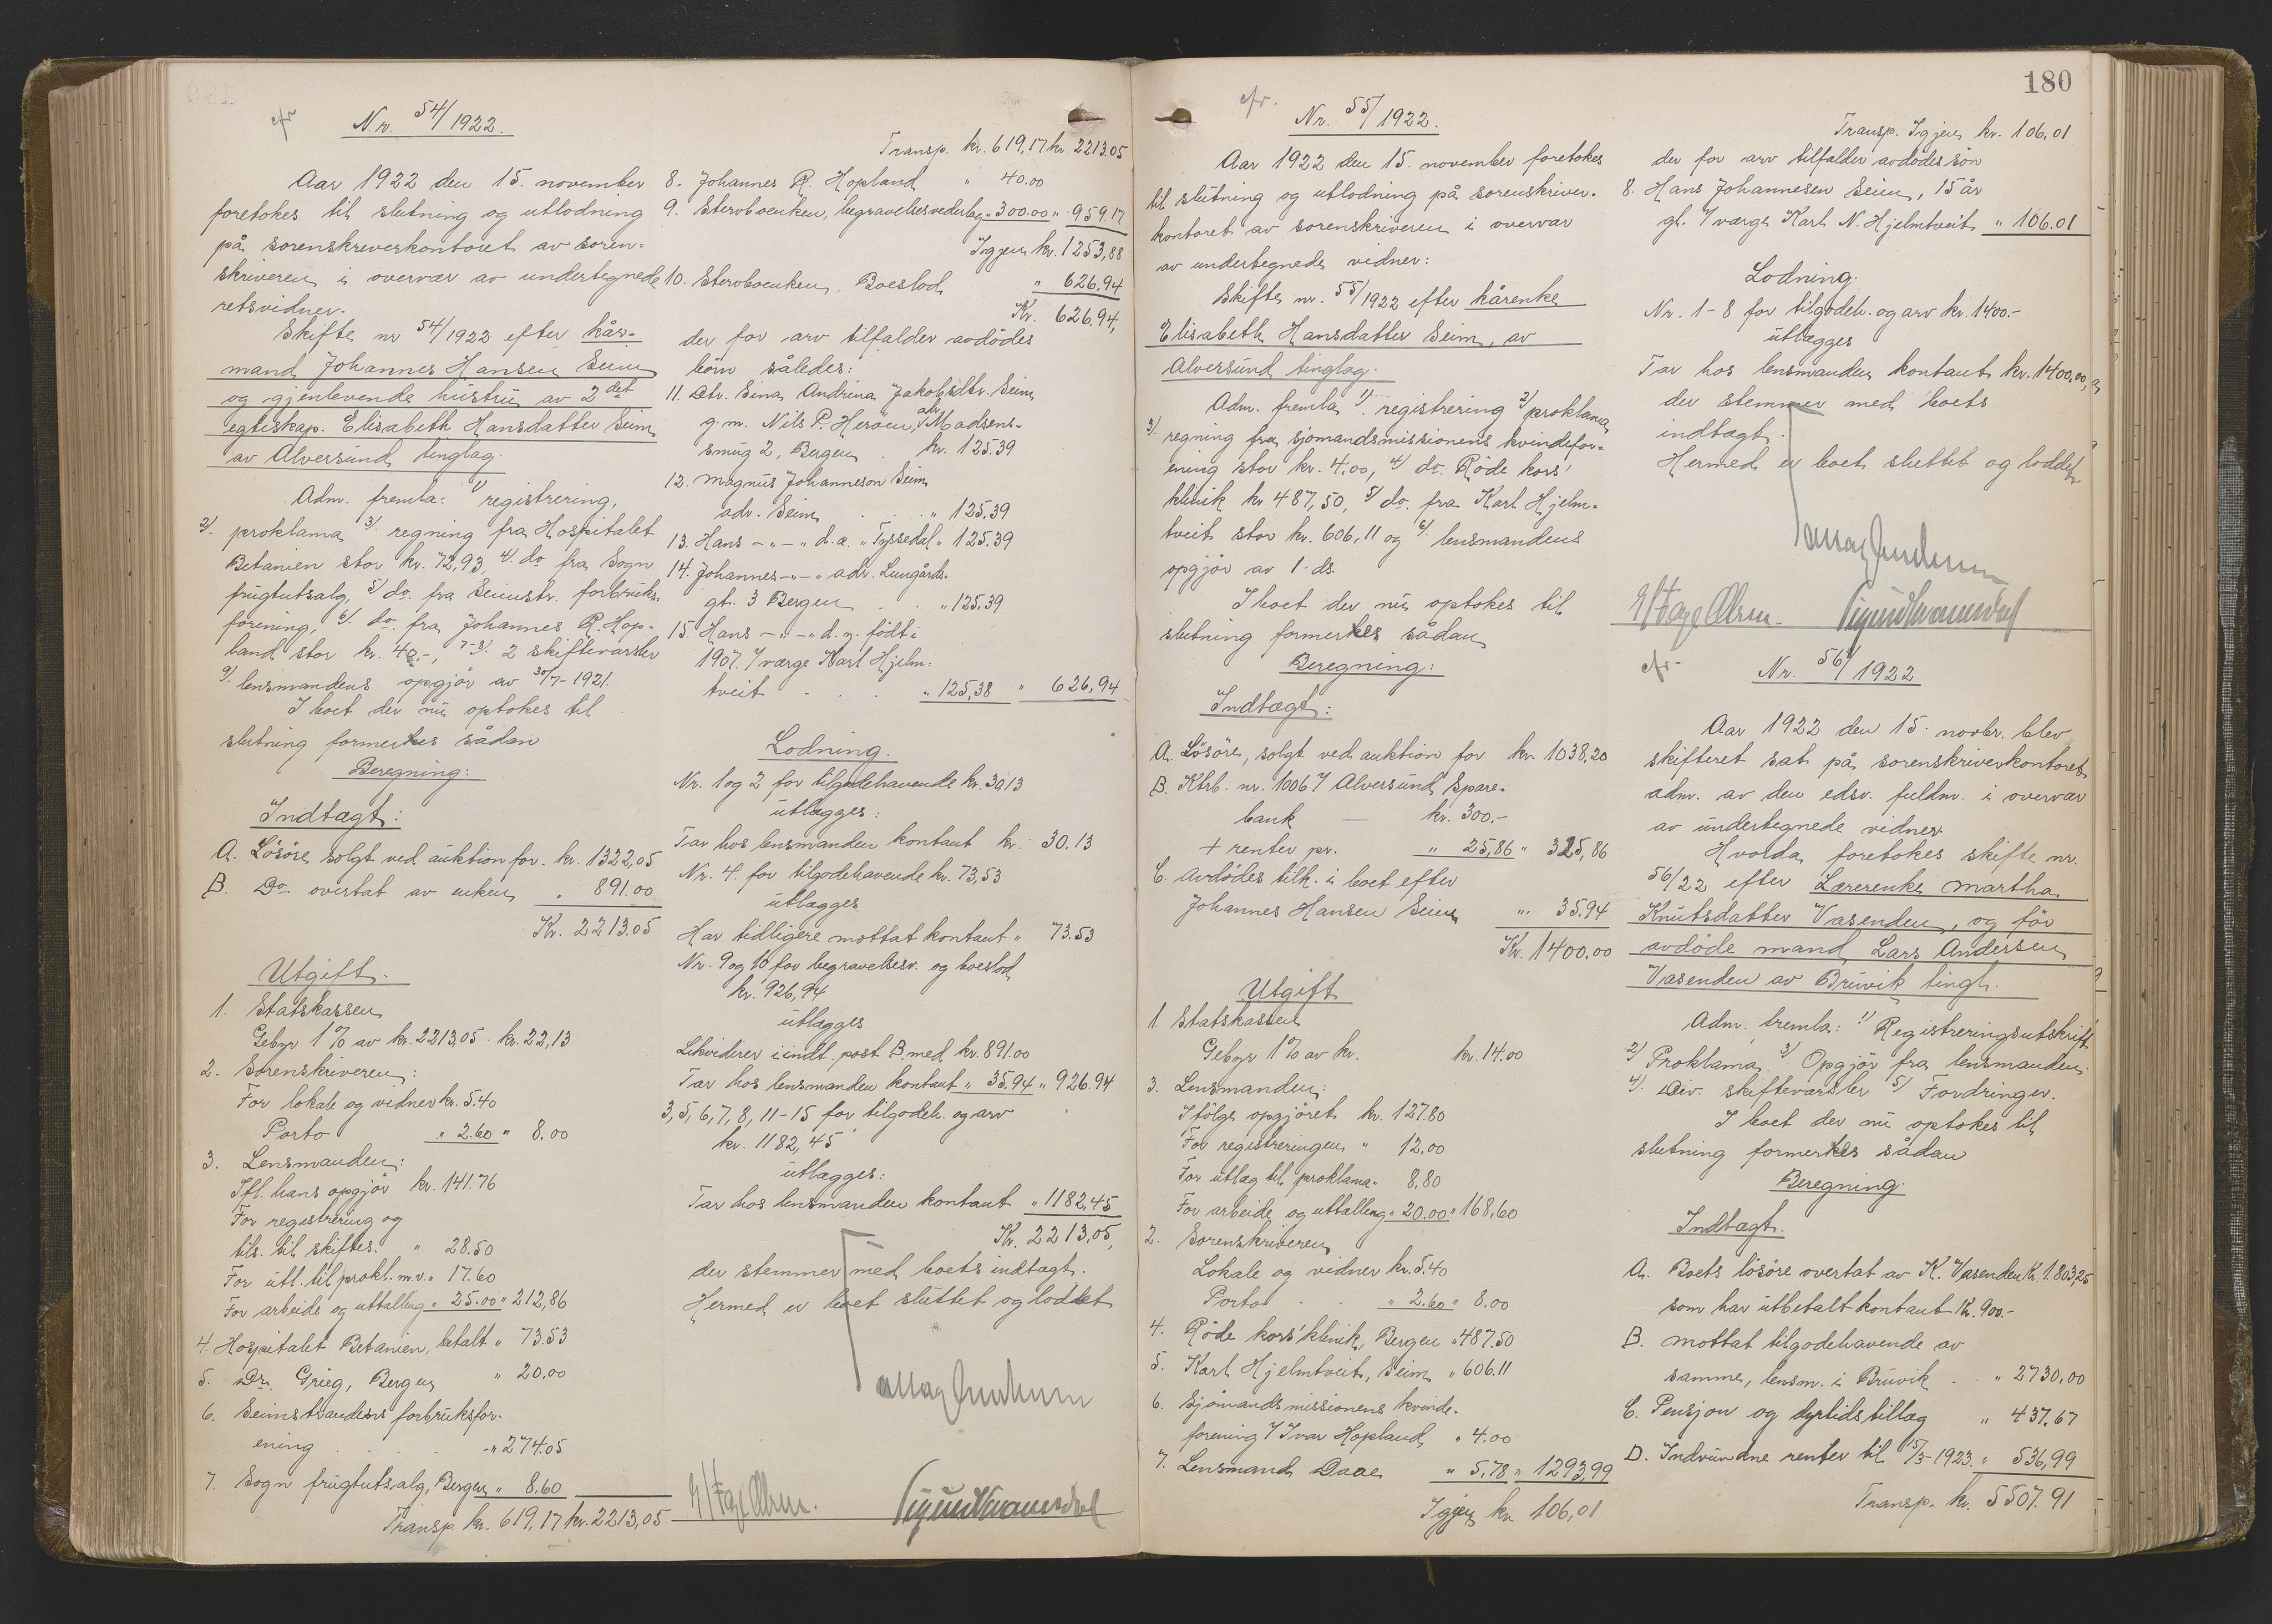 cfr
Nr. 54/1922.
Aar 1922 den 15. november
foretokes til slutning og utlodning
på sorenskriverkontoret av soren-
skriveren i overvær av undertegnede
retsvidner.
Skifte nr 54/1922 efter kår-
mand Johannes Hansen Seim
og gjenlevende hustru av 2det
egteskap. Elisabeth Hansdatter Seim
av Alversund tinglag.
Adm. fremla: 1) registrering,
2) proklama 3) regning fra Hospitalet
Betanien stor kr. 72,93, 4) do fra Sogn
frugtutsalg, 5) do. fra Seimstr. forbruks-
forening, 6) do. fra Johannes R. Hop-
land stor kr. 40.-, 7-8) 2 skiftevarsler
9) lensmandens opgjör av 30/7-1921.
I boet der nu optokes til
slutning formerkes sådan
Beregning:
Indtægt:
A. Lösöre solgt ved auktion for. kr. 1322,05
B. Do. overtat av enken " 891.00
Kr. 2213.05
Utgift.
1. Statskassen
Gebyr 1% av kr. 2213,05. kr. 22,13
2. Sorenskriveren:
For lokale og vidner kr. 5.40
Porto " 2.60 " 8.00
3. Lensmanden:
Ifl. hans opgjör kr. 141.76
For registrering og
tils. til skiftes. " 28.50
For utl. til prokl. m.v. " 17.60
For arbeide og uttalling " 25.00 " 212,86
4. Hospitalet Betanien, betalt " 73.53
5. Dr. Grieg, Bergen " 20.00
6. Seimstrandens forbruksfor-
ening . . . " 274.05
7. Sogn frugtutsalg, Bergen " 8.60
Transp. kr. 619,17 kr. 2213,05
Transp. kr. 619,17 kr. 2213.05
8. Johannes R. Hopland " 40.00
9. Stervboenken, begravelsesvederlag " 300.00 " 959.17
Igjen kr. 1253,88
10. Stervboenken Boeslod " 626.94
Kr. 626.94,
der for arv tilfalder avdödes
börn således:
11. Dtr. Sina Andrina Jakobsdtr. Seim
g.m. Nils P. Heröen, adr. Madsens-
smug 2, Bergen . kr. 125.39
12. Magnus Johanneson Seim
adr. Seim . . " 125,39
13. Hans -"-" d.æ. "Tyssedal " 125.39
14. Johannes -"-" adr. Lungårds-
gt. 3 Bergen . . " 125.39
15. Hans -"-" d.y. födt i
1907. V værge Karl Hjelm-
tveit . . . " 125,38 " 626,94
Lodning.
Nr. 1 og 2 for tilgodehavende kr. 30.13
utlægges:
Tar hos lensmanden kontant kr. 30.13
Nr. 4. for tilgodehavende kr. 73,53
utlægges
Har tidligere mottat kontant " 73.53
Nr. 9 og 10 for begravelsesv. og boeslod
kr. 926,94
utlægges
Likviderer i indt. post B. med kr. 891.00
Tar hos lensmanden kontant " 35.94 " 926.94
3, 5, 6, 7, 8, 11-15 for tilgodeh. og arv
kr. 1182,45
utlægges:
Tar hos lensmanden kontant " 1182,45
Kr. 2213,05,
der stemmer med boets indtægt.
Hermed er boet sluttet og loddet
cfr.
180
Nr. 55/1922.
Aar 1922 den 15. november foretokes
til slutning og utlodning på sorenskriver-
kontoret av sorenskriveren i overvær
av undertegnede vidner:
Skifte nr. 55/1922 efter kårenke
Elisabeth Hansdatter Seim, av
Alversund tinglag.
Adm. fremla 1) registrering 2) proklama
3) regning fra sjomandsmissionens kvindefor-
ening stor kr. 4.00, 4) do. Röde kors'
klinik kr 487,50, 5) do. fra Karl Hjelm-
tveit stor kr. 606,11 og 6) lensmandens
opgjör av 1. ds.
I boet der nu optokes til
slutning formerkes sådan
Beregning:
Indtægt:
A. Lösöre, solgt ved auktion for kr. 1038,20
B. Ktrb. nr. 10067 Alversund Spare-
bank — kr. 300.-
+ renter pr. " 25,86 " 325,86
C. Avdödes tilk. i boet efter
Johannes Hansen Seim " 35.94
Kr. 1400.00
Utgift
1. Statskassen
Gebyr 1% av kr. kr. 14.00
3. Lensmanden:
Ifölge opgjöret kr. 127.80
For registreringen " 12,00
For utlæg til proklama " 8,80
For arbeide og uttalling " 20.00 " 168,60
2. Sorenskriveren
Lokale og vidner kr. 5.40
Porto . . " 2.60 " 8.00
4. Röde kors' klinik, Bergen " 487.50
5. Karl Hjelmtveit, Seim " 606.11
6. Sjömandsmissionens kvinde-
forening V Ivar Hopland " 4.00
7. Lensmand Daae " 5,78 " 1293,99
Igjen kr 106,01
Transp. Igjen kr. 106,01
der for arv tilfalder avdödes sön
8. Hans Johannesen Seim, 15 år
gl. V værge Karl N. Hjelmtveit " 106.01
Lodning.
Nr. 1-8 for tilgodeh. og arv kr. 1400.-
utlægges
Tar hos lensmanden kontant kr. 1400,00,
der stemmer med boets
indtægt.
Hermed er boet sluttet og loddet
cfr.
Nr. 56/1922
Aar 1922 den 15. novbr. blev
skifteret sat på sorenskriverkontoret
adm. av den edsv. fuldm. i overvær
av undertegnede vidner.
Hvorda foretokes skifte nr.
56/22 efter Lærerenke Martha
Knutsdatter Vasenden, og för
avdöde mand Lars Andersen
Vasenden av Bruvik tingl.
Adm. fremla: 1) Registreringsutskrift
2) Proklama 3) Opgjör fra lensmanden.
4) Div. skiftevarsler 5) Fordringer.
I boet der nu optokes til
slutning formerkes sådan
Beregning
Indtægt.
A. Boets lösöre overtat av K. Vasenden kr. 1.803,25
som har utbetalt kontant Kr. 900.-
B. Mottat tilgodehavende av
samme, lensm. i Bruvik . . " 2730,00
C. Pensjon og dyrtidstillæg " 437,67
D. Indvundne renter til 15/3-1923. " 536,99
Transp. kr. 5507.91